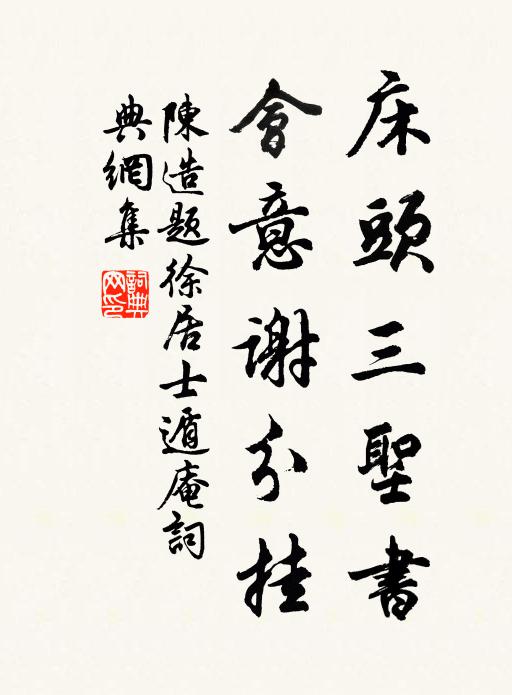 床頭三聖書
會意謝分挂
陳造題徐居士遁庵詞
典網集
詞典網印